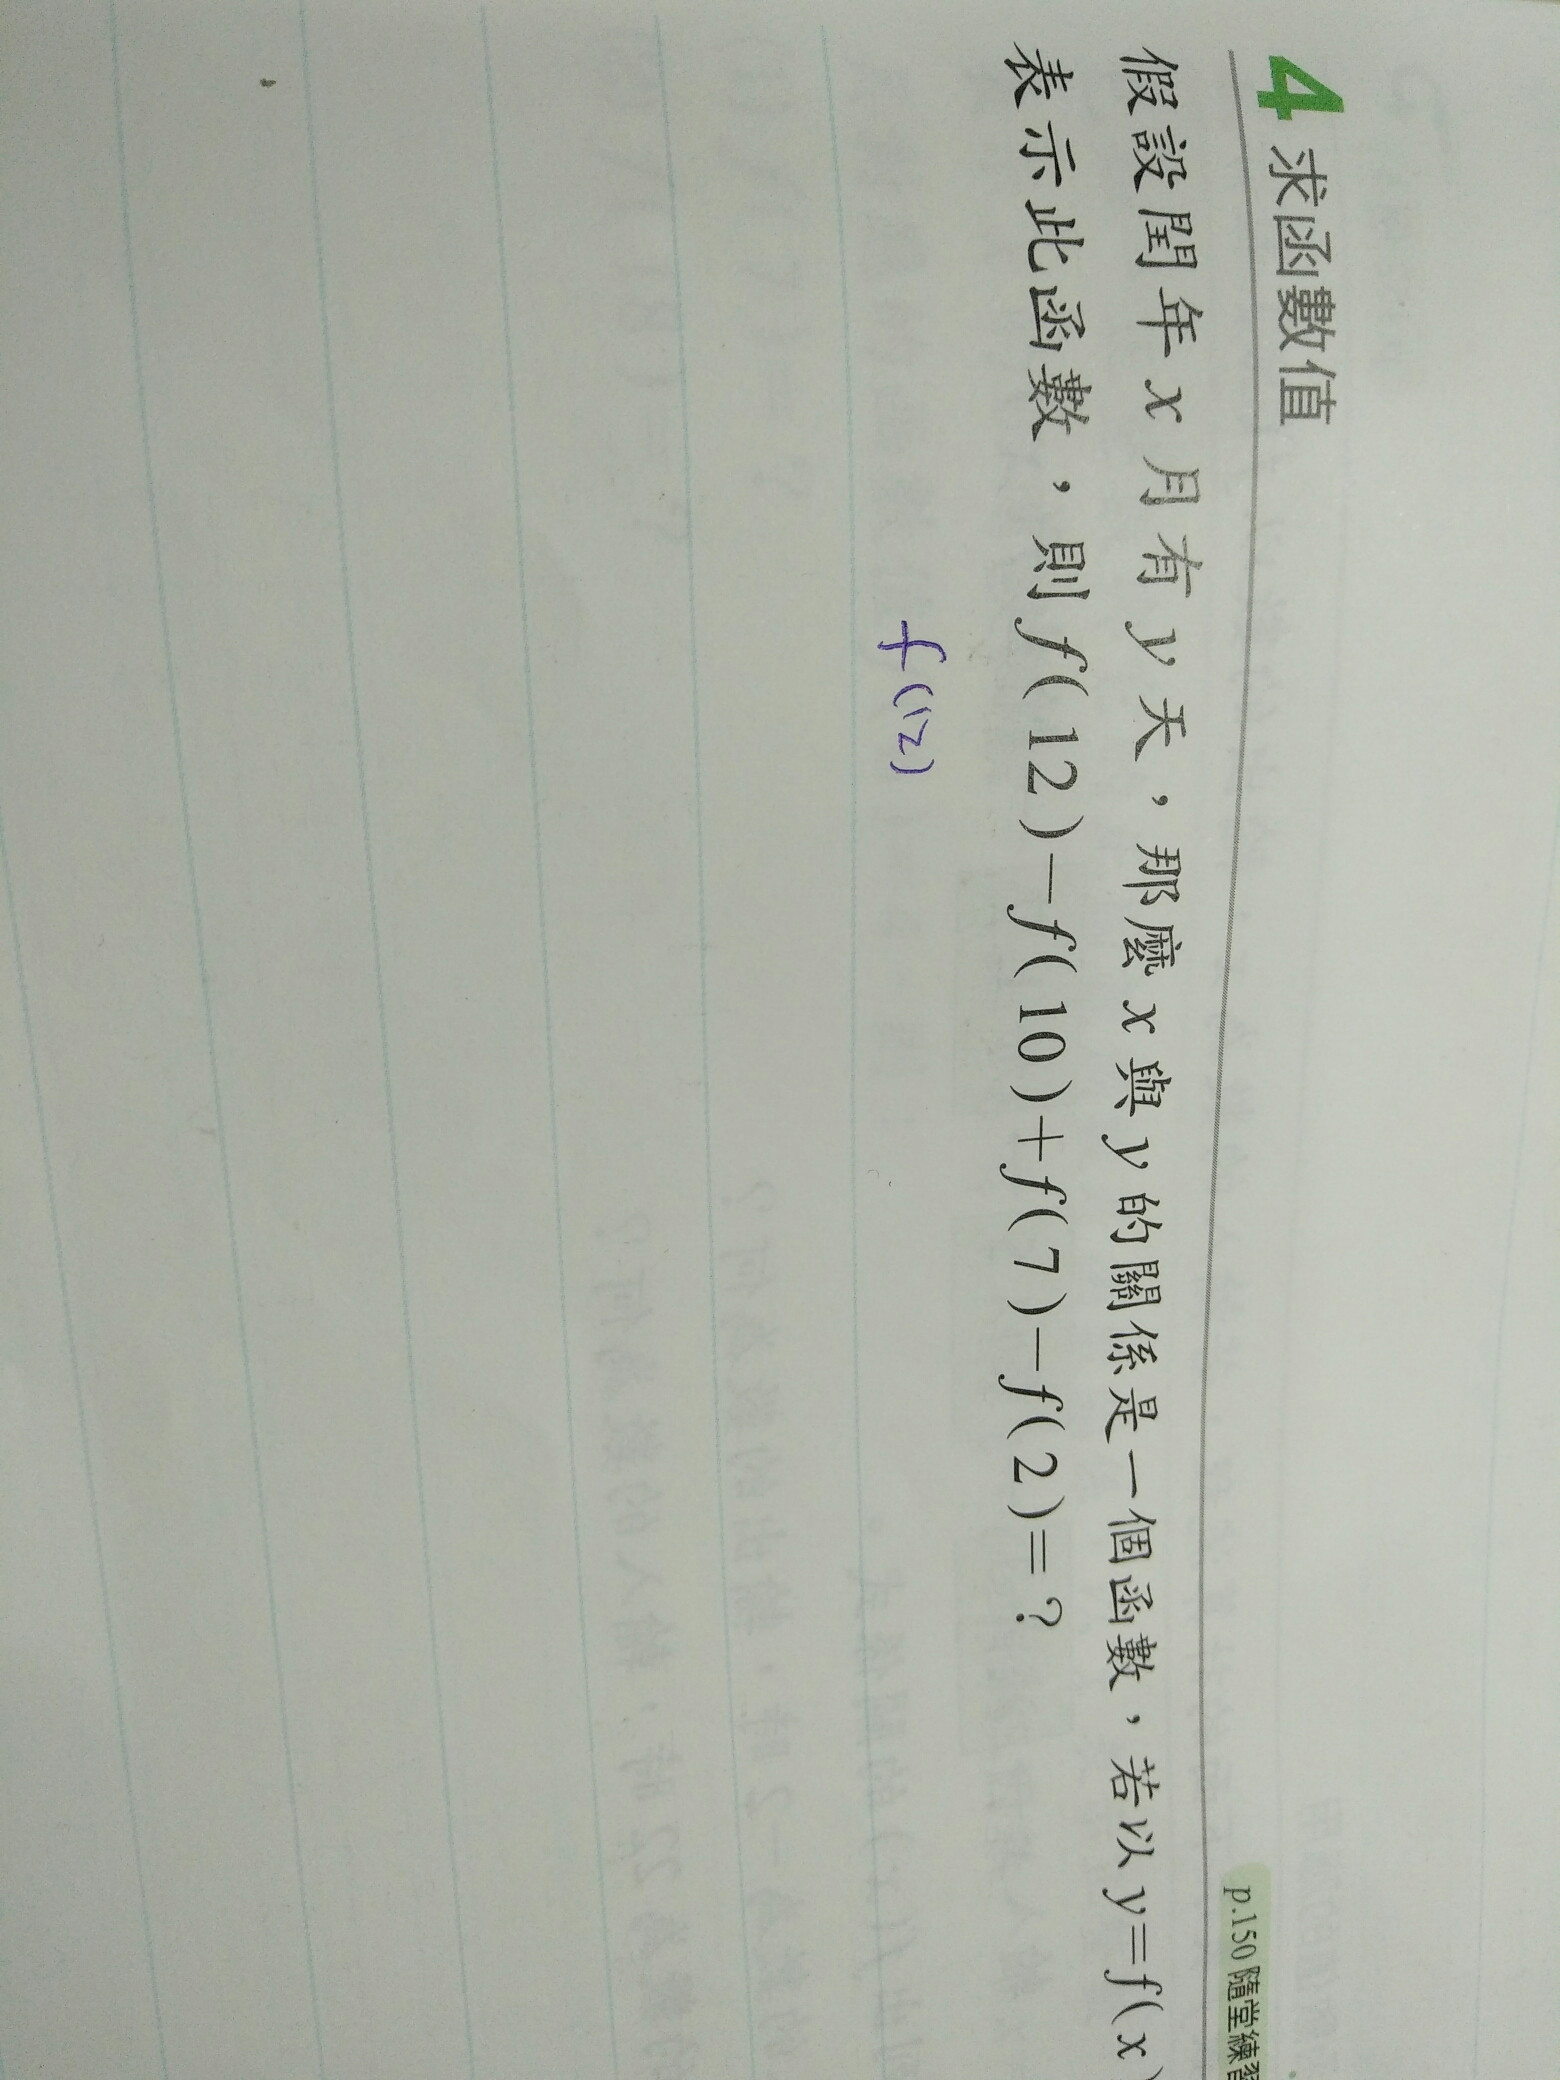 4 求函數值
p.150 隨堂練習
假設閏年 x 月有 y 天，那麼 x 與 y 的關係是一個函數，若以 y=f(x)
表示此函數，則 f(12)－f(10)＋f(7)－f(2)=？
f(12)